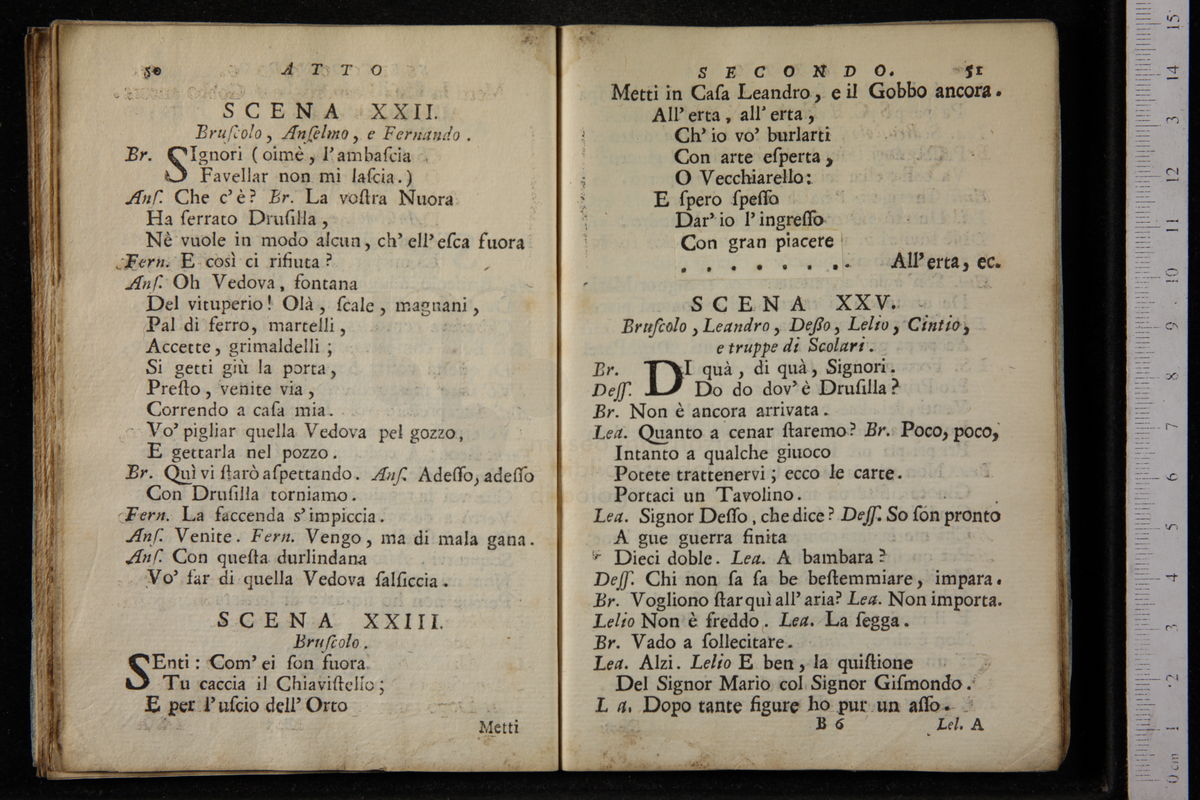 50 ATTO
SCENA XXII.
Bruſcolo, Anſelmo, e Fernando.
Br. SIgnori (oimè, l'ambaſcia
Favellar non mi laſcia.)
Anſ. Che c'è? Br. La voſtra Nuora
Ha ſerrato Druſilla,
Nè vuole in modo alcun, ch'ell'eſca fuora
Fern. E così ci rifiuta?
Anſ. Oh Vedova, fontana
Del vituperio! Olà, ſcale, magnani,
Pal di ferro, martelli,
Accette, grimaldelli;
Si getti giù la porta,
Preſto, venite via,
Correndo a caſa mia.
Vo' pigliar quella Vedova pel gozzo,
E gettarla nel pozzo.
Br. Quì vi ſtarò aſpettando. Anſ. Adeſſo, adeſſo
Con Druſilla torniamo.
Fern. La faccenda s'impiccia.
Anſ. Venite. Fern. Vengo, ma di mala gana.
Anſ. Con queſta durlindana
Vo' far di quella Vedova ſalſiccia.
SCENA XXIII.
Bruſcolo.
SEnti: Com' ei ſon fuora
Tu caccia il Chiaviſtello;
E per l'uſcio dell' Orto
Metti
SECONDO. 51
Metti in Caſa Leandro, e il Gobbo ancora.
All' erta, all' erta,
Ch' io vo' burlarti
Con arte eſperta,
O Vecchiarello:
E ſpero ſpeſſo
Dar' io l'ingreſſo
Con gran piacere
. . . . . . . . All' erta, ec.
SCENA XXV.
Bruſcolo, Leandro, Deſſo, Lelio, Cintio,
e truppe di Scolari.
Br. DI quà, di quà, Signori.
Deſſ. Do do dov' è Druſilla?
Br. Non è ancora arrivata.
Lea. Quanto a cenar ſtaremo? Br. Poco, poco,
Intanto a qualche giuoco
Potete trattenervi; ecco le carte.
Portaci un Tavolino.
Lea. Signor Deſſo, che dice? Deſſ. So ſon pronto
A gue guerra finita
Dieci doble. Lea. A bambara?
Deſſ. Chi non ſa ſa be beſtemmiare, impara.
Br. Vogliono ſtar quì all' aria? Lea. Non importa.
Lelio Non è freddo. Lea. La ſegga.
Br. Vado a ſollecitare.
Lea. Alzi. Lelio E ben, la quiſtione
Del Signor Mario col Signor Giſmondo.
L a. Dopo tante figure ho pur un aſſo.
B 6 Lel. A
0 cm 1 2 3 4 5 6 7 8 9 10 11 12 13 14 15